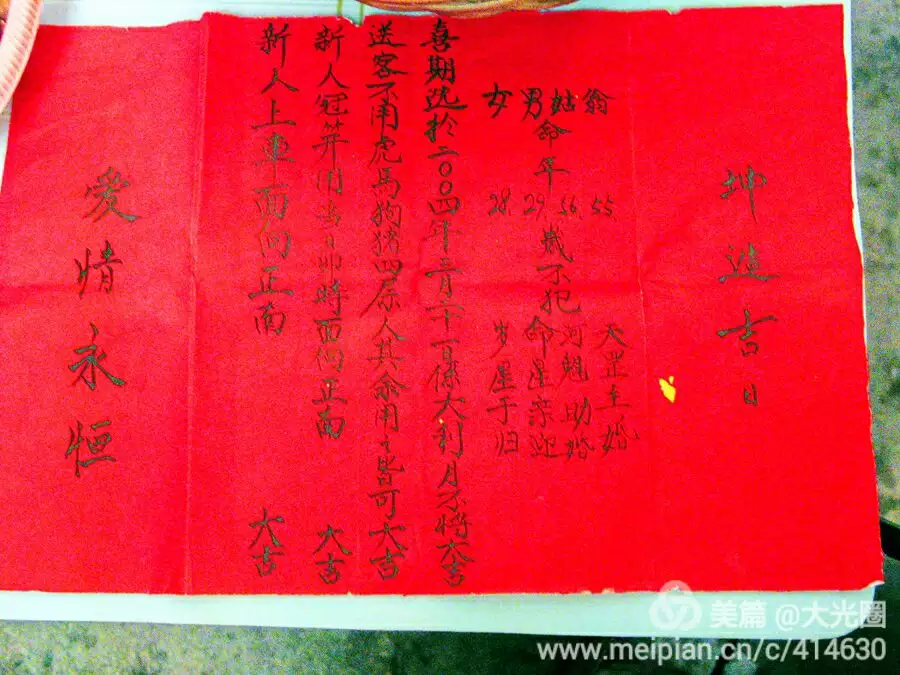 坤造吉日
翁 55 天罡主婚
姑 56 河魁助婚
男命年 29 岁不犯命星亲迎
女 28 岁星于归
喜期选於二〇〇四年三月二十一日係大利月不将大吉
送客不用虎馬狗猪四属人其余用之皆可大吉
新人冠笄用当日卯時面向正南 大吉
新人上車面向正南 大吉
愛情永恒
美篇 @大光圈
www.meipian.cn/c/414630